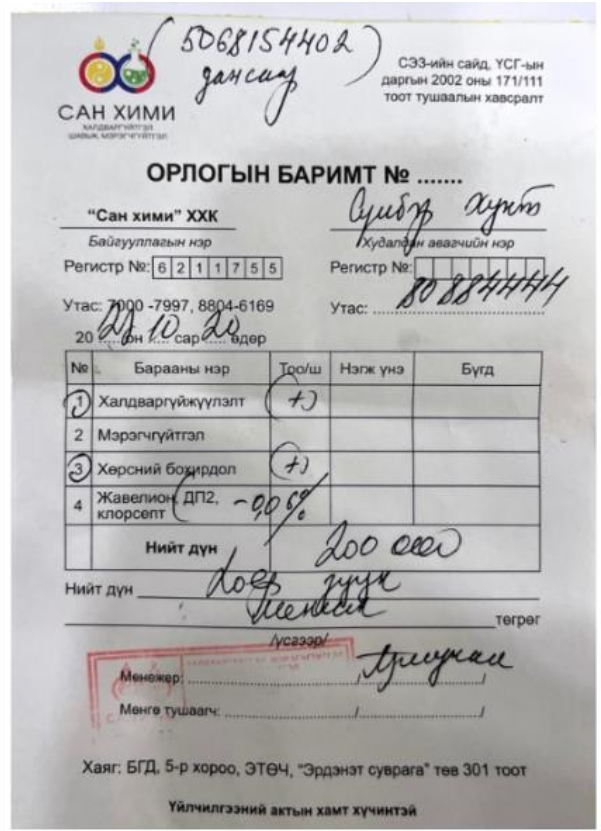 (5068154402)
дансаар
САН ХИМИ
ХАЛДВАРГҮЙТГЭЛ
ШАВЬЖ, МЭРЭГЧГҮЙТГЭЛ
СЭЗ-ийн сайд, ҮСГ-ын
даргын 2002 оны 171/111
тоот тушаалын хавсралт
ОРЛОГЫН БАРИМТ № .......
"Сан хими" ХХК
Байгууллагын нэр
Худалдан авагчийн нэр
Регистр №: 6 2 1 1 7 5 5
Регистр №:
Утас: 7000 -7997, 8804-6169
Утас: 80884444
20 он 10 сар 20 өдөр
№ Барааны нэр Тоо/ш Нэгж үнэ Бүгд
1 Халдваргүйжүүлэлт (+)
2 Мэрэгчгүйтгэл
3 Хөрсний бохирдол (+)
4 Жавелион, ДП2, клорсепт - 0,06%
Нийт дүн 200 000
Нийт дүн Хоёр зуун
мянган төгрөг
/үсгээр/
Менежер: ........ / ........ /
Мөнгө тушаагч: ........ / ........ /
Хаяг: БГД, 5-р хороо, ЭТӨЧ, "Эрдэнэт суврага" төв 301 тоот
Үйлчилгээний актын хамт хүчинтэй